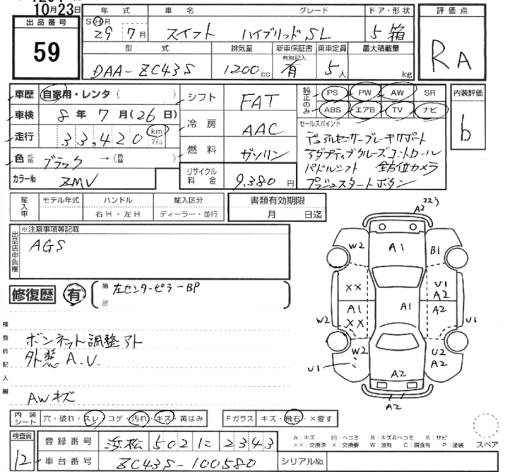 10月23日
出品番号 59
年式 車名 グレード ドア・形状
S H 29年 7月 スイフト ハイブリッドSL 5 箱
型式 排気量 新車保証書 乗車定員 最大積載量
DAA-ZC43S 1200cc 有 5人 kg
評価点
RA
車歴 自家用・レンタ( )
車検 8年 7月(26日)
走行 33,420 km マイル
色 ブラック →(色 )
カラーNo ZMV
シフト FAT
冷房 AAC
燃料 ガソリン
リサイクル料金 9,380円
純正のみ PS PW AW SR
ABS エアB TV ナビ
セールスポイント
デュアルセンサーブレーキサポート
アダプティブクルーズコントロール
パドルシフト 全方位カメラ
プッシュスタートボタン
内装評価
b
輸入車 モデル年式 ハンドル 輸入区分 書類有効期限
右H・左H ディーラー・並行 月 日迄
出品店申告欄
※注意事項等記載
AGS
修復歴 有 ( 左センターピラーBP )
検査員記入欄
ボンネット調整アト
外装 A.U.
AWキズ
内装シート 穴・破れ・スレ・コゲ・汚れ・キズ・黄ばみ Fガラス キズ・飛石・×要す
検査員 12
登録番号 浜松 502 に 2343
車台番号 ZC43S-100580 シリアルNo.
W2 A1 B1
XX A1 U1 A2
A1 XX A2
W2 W2
W2 A2 U2 A2
U1 A2
A2
スペア